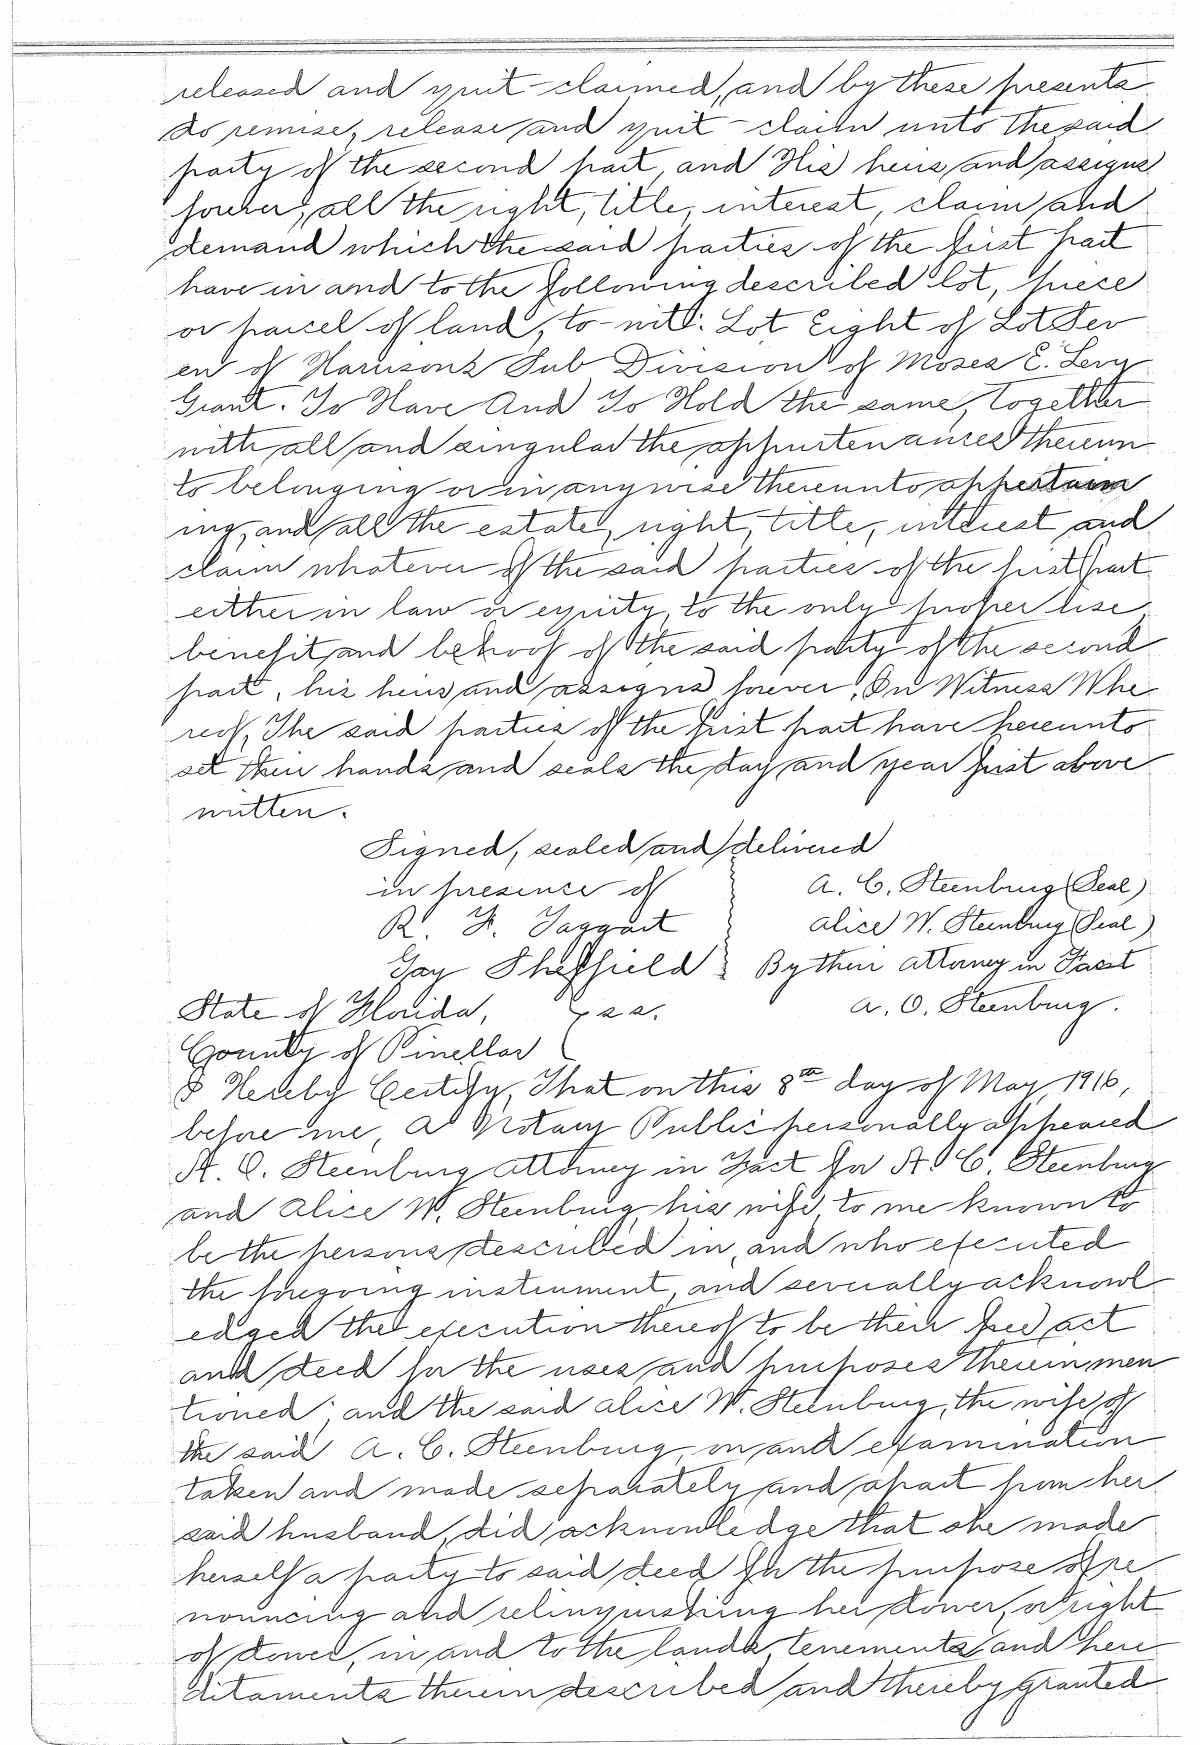 released and quit-claimed, and by these presents
do remise, release and quit-claim unto the said
party of the second part, and His heirs and assigns
forever, all the right, title, interest, claim and
demand which the said parties of the first part
have in and to the following described lot, piece
or parcel of land, to-wit: Lot Eight of Lot Sev
en of Harrisons Sub Division of Moses E. Levy
Grant. To Have And To Hold the same, together
with all and singular the appurtenances thereun
to belonging or in anywise thereunto appertain
ing, and all the estate, right, title, interest and
claim whatever of the said parties of the first part
either in law or equity, to the only proper use,
benefit and behoof of the said party of the second
part, his heirs and assigns forever. In Witness Whe
reof, The said parties of the first part have hereunto
set their hands and seals the day and year first above
written.
Signed, sealed and delivered
in presence of A. C. Steenburg (Seal)
R. F. Taggart Alice W. Steenburg (Seal)
Gay Sheffield By their attorney in Fact
State of Florida, ss. A. O. Steenburg.
County of Pinellas
I Hereby Certify, That on this 8th day of May, 1916,
before me, a Notary Public personally appeared
A. O. Steenburg attorney in Fact for A. C. Steenburg
and Alice W. Steenburg, his wife, to me known to
be the persons described in, and who executed
the foregoing instrument, and severally acknowl
edged the execution thereof to be their free act
and deed for the uses and purposes therein men
tioned; and the said Alice W. Steenburg, the wife of
the said A. C. Steenburg, on and examination
taken and made separately and apart from her
said husband, did acknowledge that she made
herself a party to said deed for the purpose of re
nouncing and relinquishing her dower, or right
of dower, in and to the lands, tenements and here
ditaments therein described and thereby granted